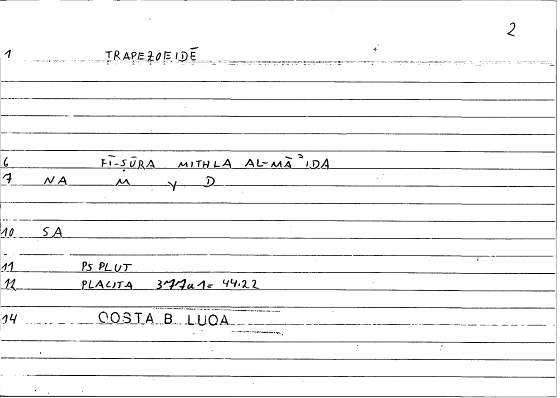 2
1 TRAPEZOEIDĒ
6 FĪ-ṢŪRA MITHLA AL-MĀʾIDA
7 NA M Y D
10 SA
11 PS PLUT
12 PLACITA 377a1= 44.22
14 COSTA B. LUCA